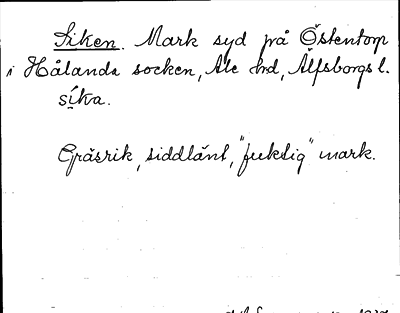 Siken. Mark syd på Östentorp
i Hålanda socken, Ale hd, Älfsborgs l.
síka.
Gräsrik, siddlänt, "fuktig" mark.